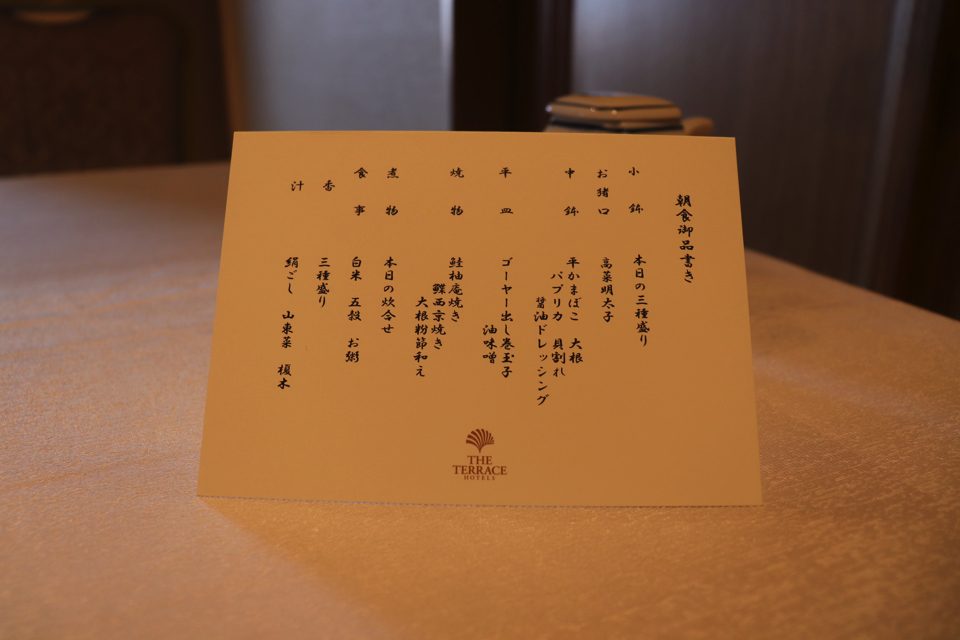 朝食御品書き
小鉢 本日の三種盛り
お猪口 高菜明太子
中鉢 平かまぼこ 大根
パプリカ 貝割れ
醤油ドレッシング
平皿 ゴーヤー出し巻玉子
油味噌
焼物 鮭柚庵焼き
鰈西京焼き
大根粉節和え
煮物 本日の炊合せ
食事 白米 五穀 お粥
香 三種盛り
汁 絹ごし 山東菜 榎木
THE
TERRACE
HOTELS